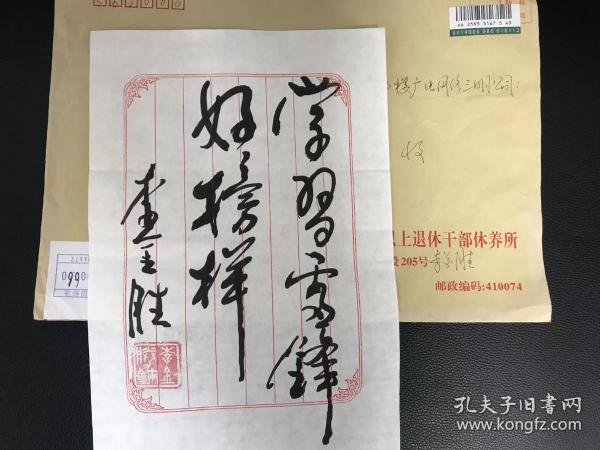 学习雷锋
好榜样
李金胜
RA 2595 5167 5 43
楼广电网络三明公司:
收
上退休干部休养所
205号 李金胜
邮政编码:410074
孔夫子旧书网
www.kongfz.com